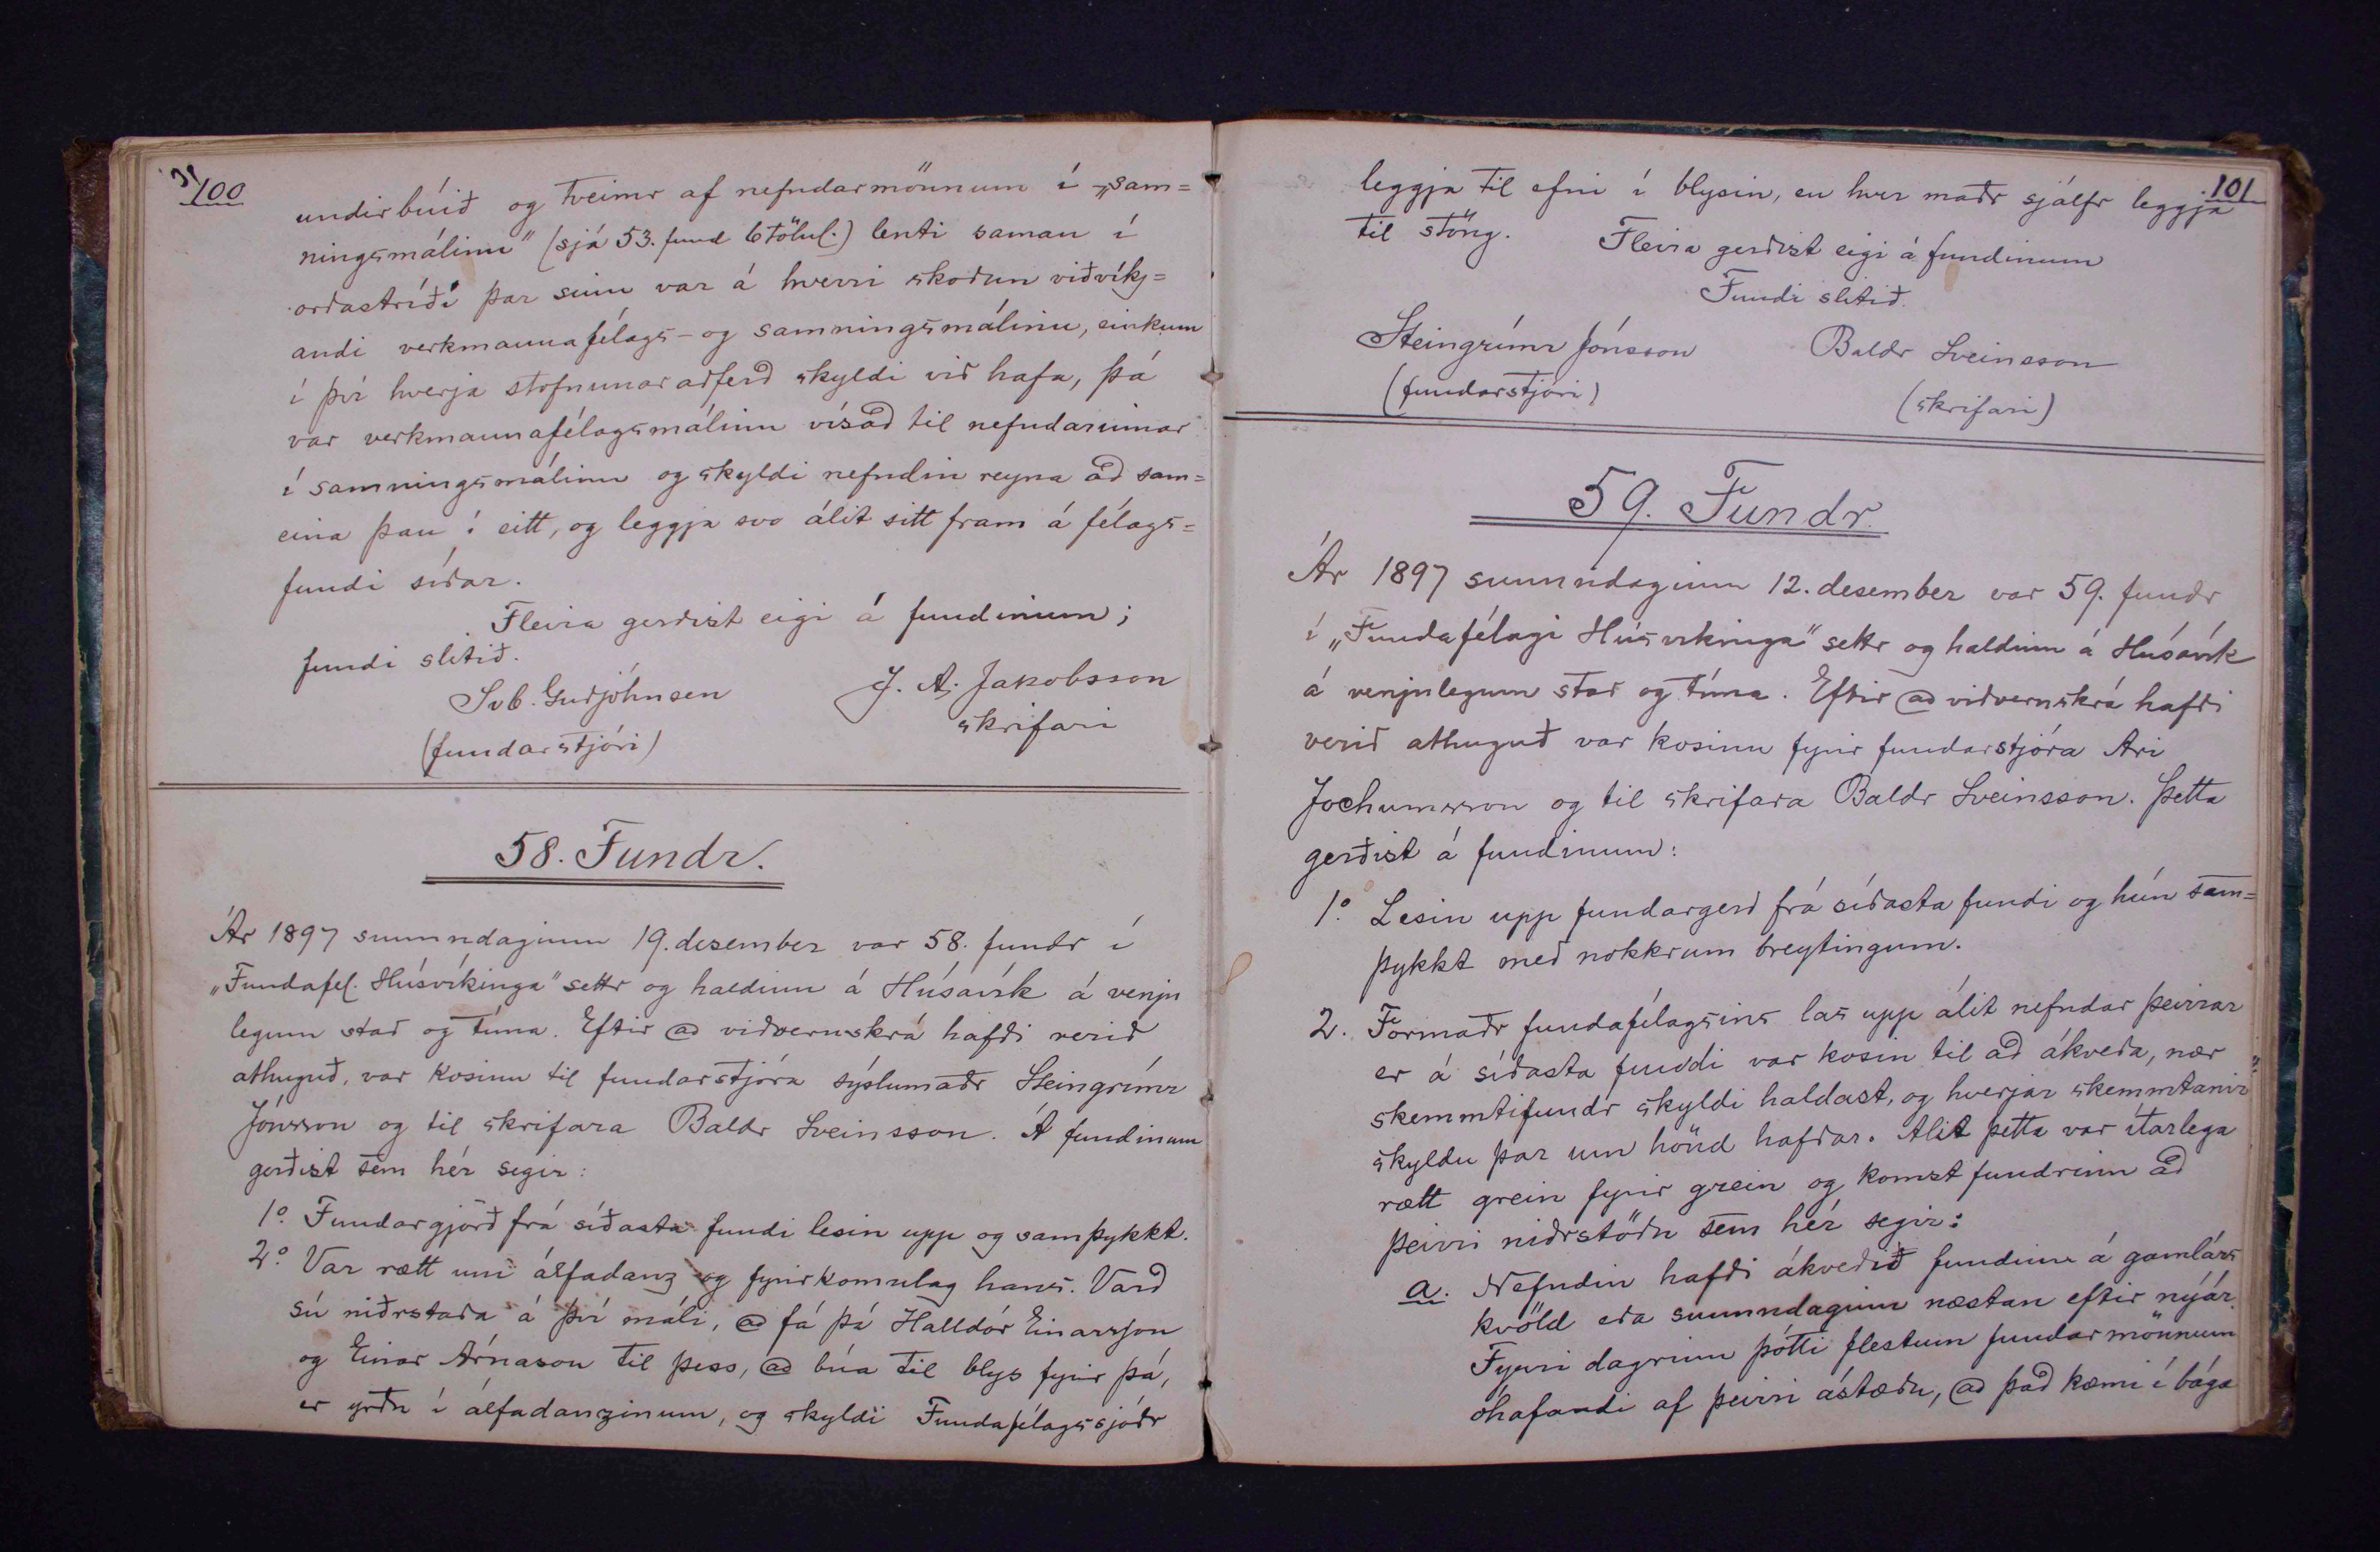 100
undirbúið og tveimr af nefndarmönnum í "sam=
ningsmálinu" (sjá 53. fund 6 tölul.) lenti saman í
orðastríði þar sinn var á hverri skoðun viðvíkj=
andi verkmannafélags- og samningsmálinu, einkum
í því hverja stofnunaraðferð skyldi við hafa, þá
var verkmannafélagsmálinu vísað til nefndarinnar
í samningsmálinu og skyldi nefndin reyna að sam=
eina þau í eitt, og leggja svo álit sitt fram á félags=
fundi síðar.
Fleira gerðist eigi á fundinum;
fundi slitið.
Svb. Guðjohnsen
J. A. Jakobsson
(fundarstjóri)
skrifari
58. Fundr.
Ár 1897 sunnudaginn 19. desember var 58. fundr í
„Fundafél. Húsvíkinga" settr og haldinn á Húsavík á venju
legum stað og tíma. Eftir að viðverurskrá hafði verið
athuguð, var kosinn til fundarstjóra sýslumaðr Steingrímr
Jónsson og til skrifara Baldr Sveinsson. Á fundinum
gerðist sem hér segir:
1° Fundargjörð frá síðasta fundi lesin upp og samþykkt.
2° Var rætt um álfadanz og fyrirkomulag hans. Varð
sú niðrstaða á því máli, að fá þá Halldór Einarsson
og Einar Árnason til þess, að búa til blys fyrir þá,
er yrðu í álfadanzinum, og skyldi Fundafélagssjóðr
101
leggja til efni í blysin, en hver maðr sjálfr leggja
til stöng. Fleira gerðist eigi á fundinum
Fundi slitið.
Steingrímr Jónsson
Baldr Sveinsson
(fundarstjóri)
(skrifari)
59. Fundr.
Ár 1897 sunnudaginn 12. desember var 59. fundr
í „Fundafélagi Húsvíkinga" settr og haldinn á Húsavík
á venjulegum stað og tíma. Eftir að viðveruskrá hafði
verið athuguð var kosinn fyrir fundarstjóra Ari
Jochumsson og til skrifara Baldr Sveinsson. Þetta
gerðist á fundinum:
1° Lesin upp fundargerð frá síðasta fundi og hún sam=
þykkt með nokkrum breytingum.
2. Formaðr fundafélagsins las upp álit nefndar þeirrar
er á síðasta fundi var kosin til að ákveða, nær
skemmtifundr skyldi haldast, og hverjar skemmtanir
skyldu þar um hönd hafðar. Álit þetta var ítarlega
rætt grein fyrir grein og komst fundrinn að
þeirri niðrstöðu sem hér segir:
a. Nefndin hafði ákveðið fundinn á gamlárs
kvöld eða sunnudaginn næstan eftir nýár.
Fyrri dagrinn þótti flestum fundarmönnum
óhafandi af þeirri ástæðu, að það kæmi í bága